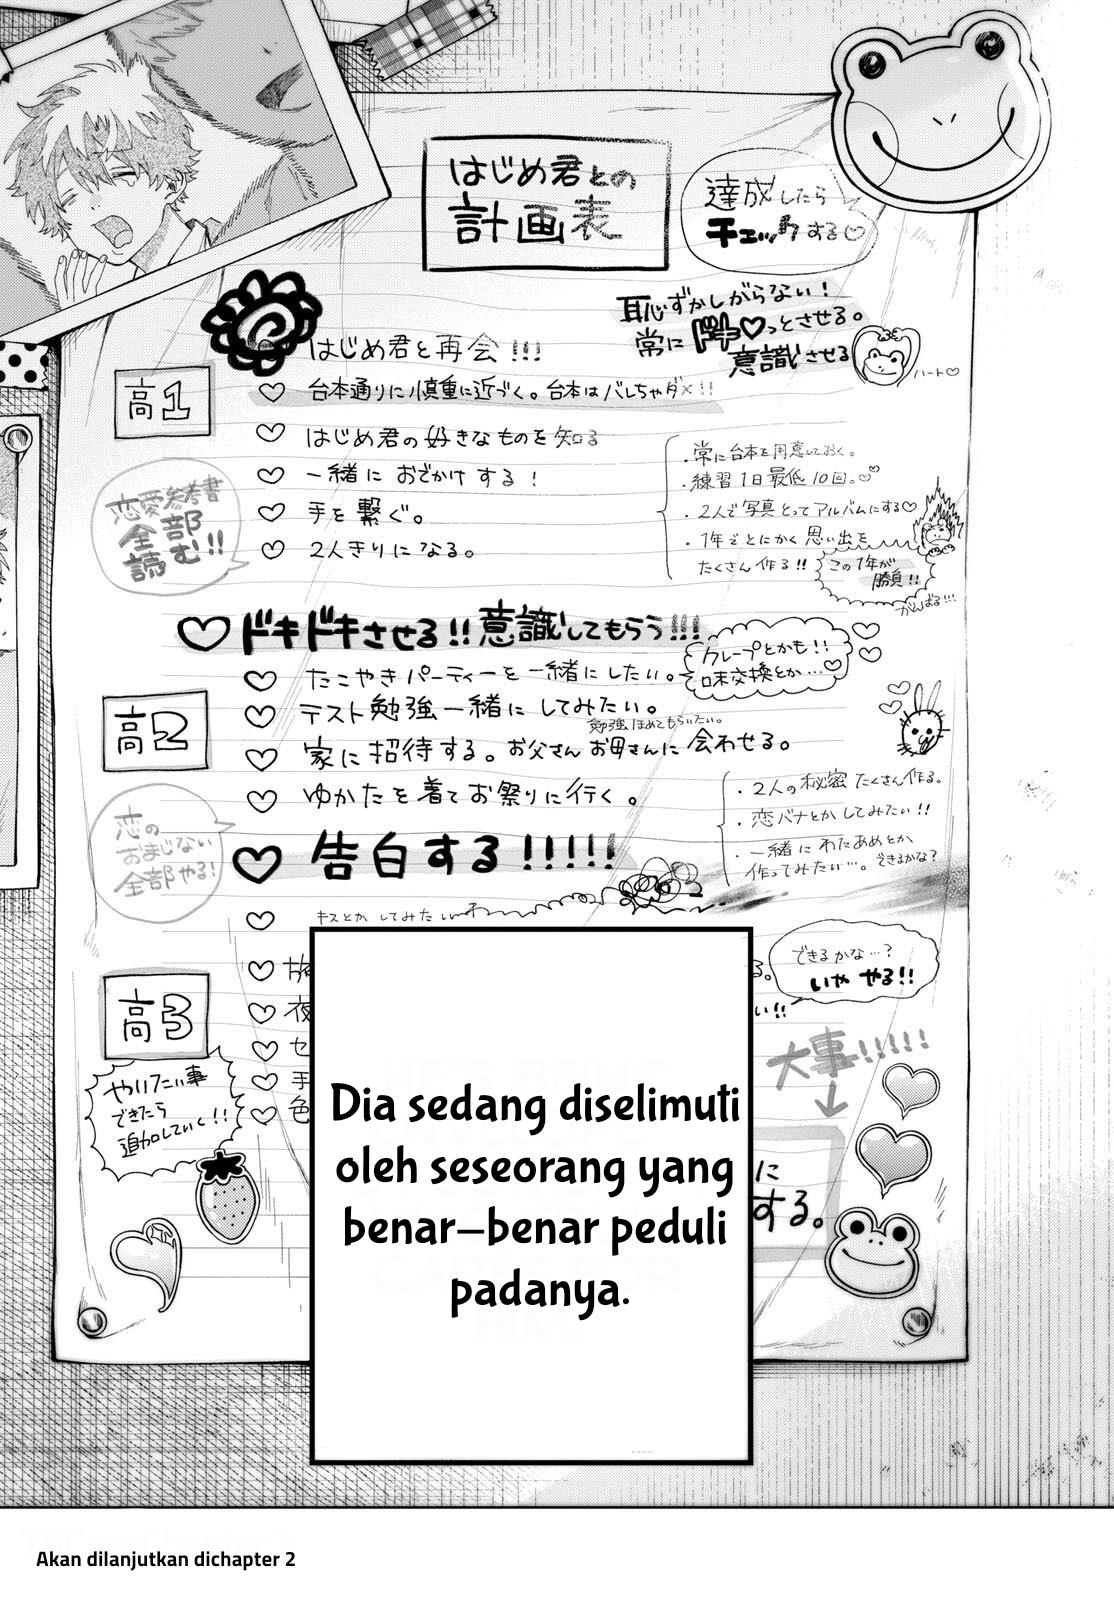 はじめ君との
計画表
達成したら
チェックする♡
恥ずかしがらない！
常にドキ♡っとさせる。
意識させる
ハート♡
はじめ君と再会!!!
高1
♡ 台本通りに慎重に近づく。台本はバレちゃダメ!!
♡ はじめ君の好きなものを知る
♡ 一緒におでかけする！
♡ 手を繋ぐ。
♡ 2人きりになる。
恋愛参考書
全部
読む!!
・常に台本を用意しておく。
・練習1日最低10回。♡
・2人で写真とってアルバムにする♡
・1年ごとにかく思い出を
たくさん作る!!
この1年が
勝負!!
がんばる!!!
♡ ドキドキさせる!!意識してもらう!!!
♡ たこやきパーティーを一緒にしたい。
クレープとかも!!
味交換とか…♡
♡ テスト勉強一緒にしてみたい。
勉強ほめてもらいたい。
高2
♡ 家に招待する。お父さんお母さんに会わせる。
♡ ゆかたを着てお祭りに行く。
・2人の秘密たくさん作る。
・恋バナとかしてみたい!!
・一緒にわたあめとか
作ってみたい…。できるかな？
恋の
おまじない
全部やる!
♡ 告白する!!!!!
♡ キスとかしてみたい
高3
できるかな…？
いや やる!!
い!!
大事!!!!!
やりたい事
できたら
追加していく!!
に
する。
Dia sedang diselimuti
oleh seseorang yang
benar-benar peduli
padanya.
Akan dilanjutkan dichapter 2